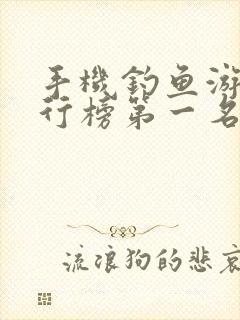 手機釣鱼游
行榜第一名
流浪狗的悲哀